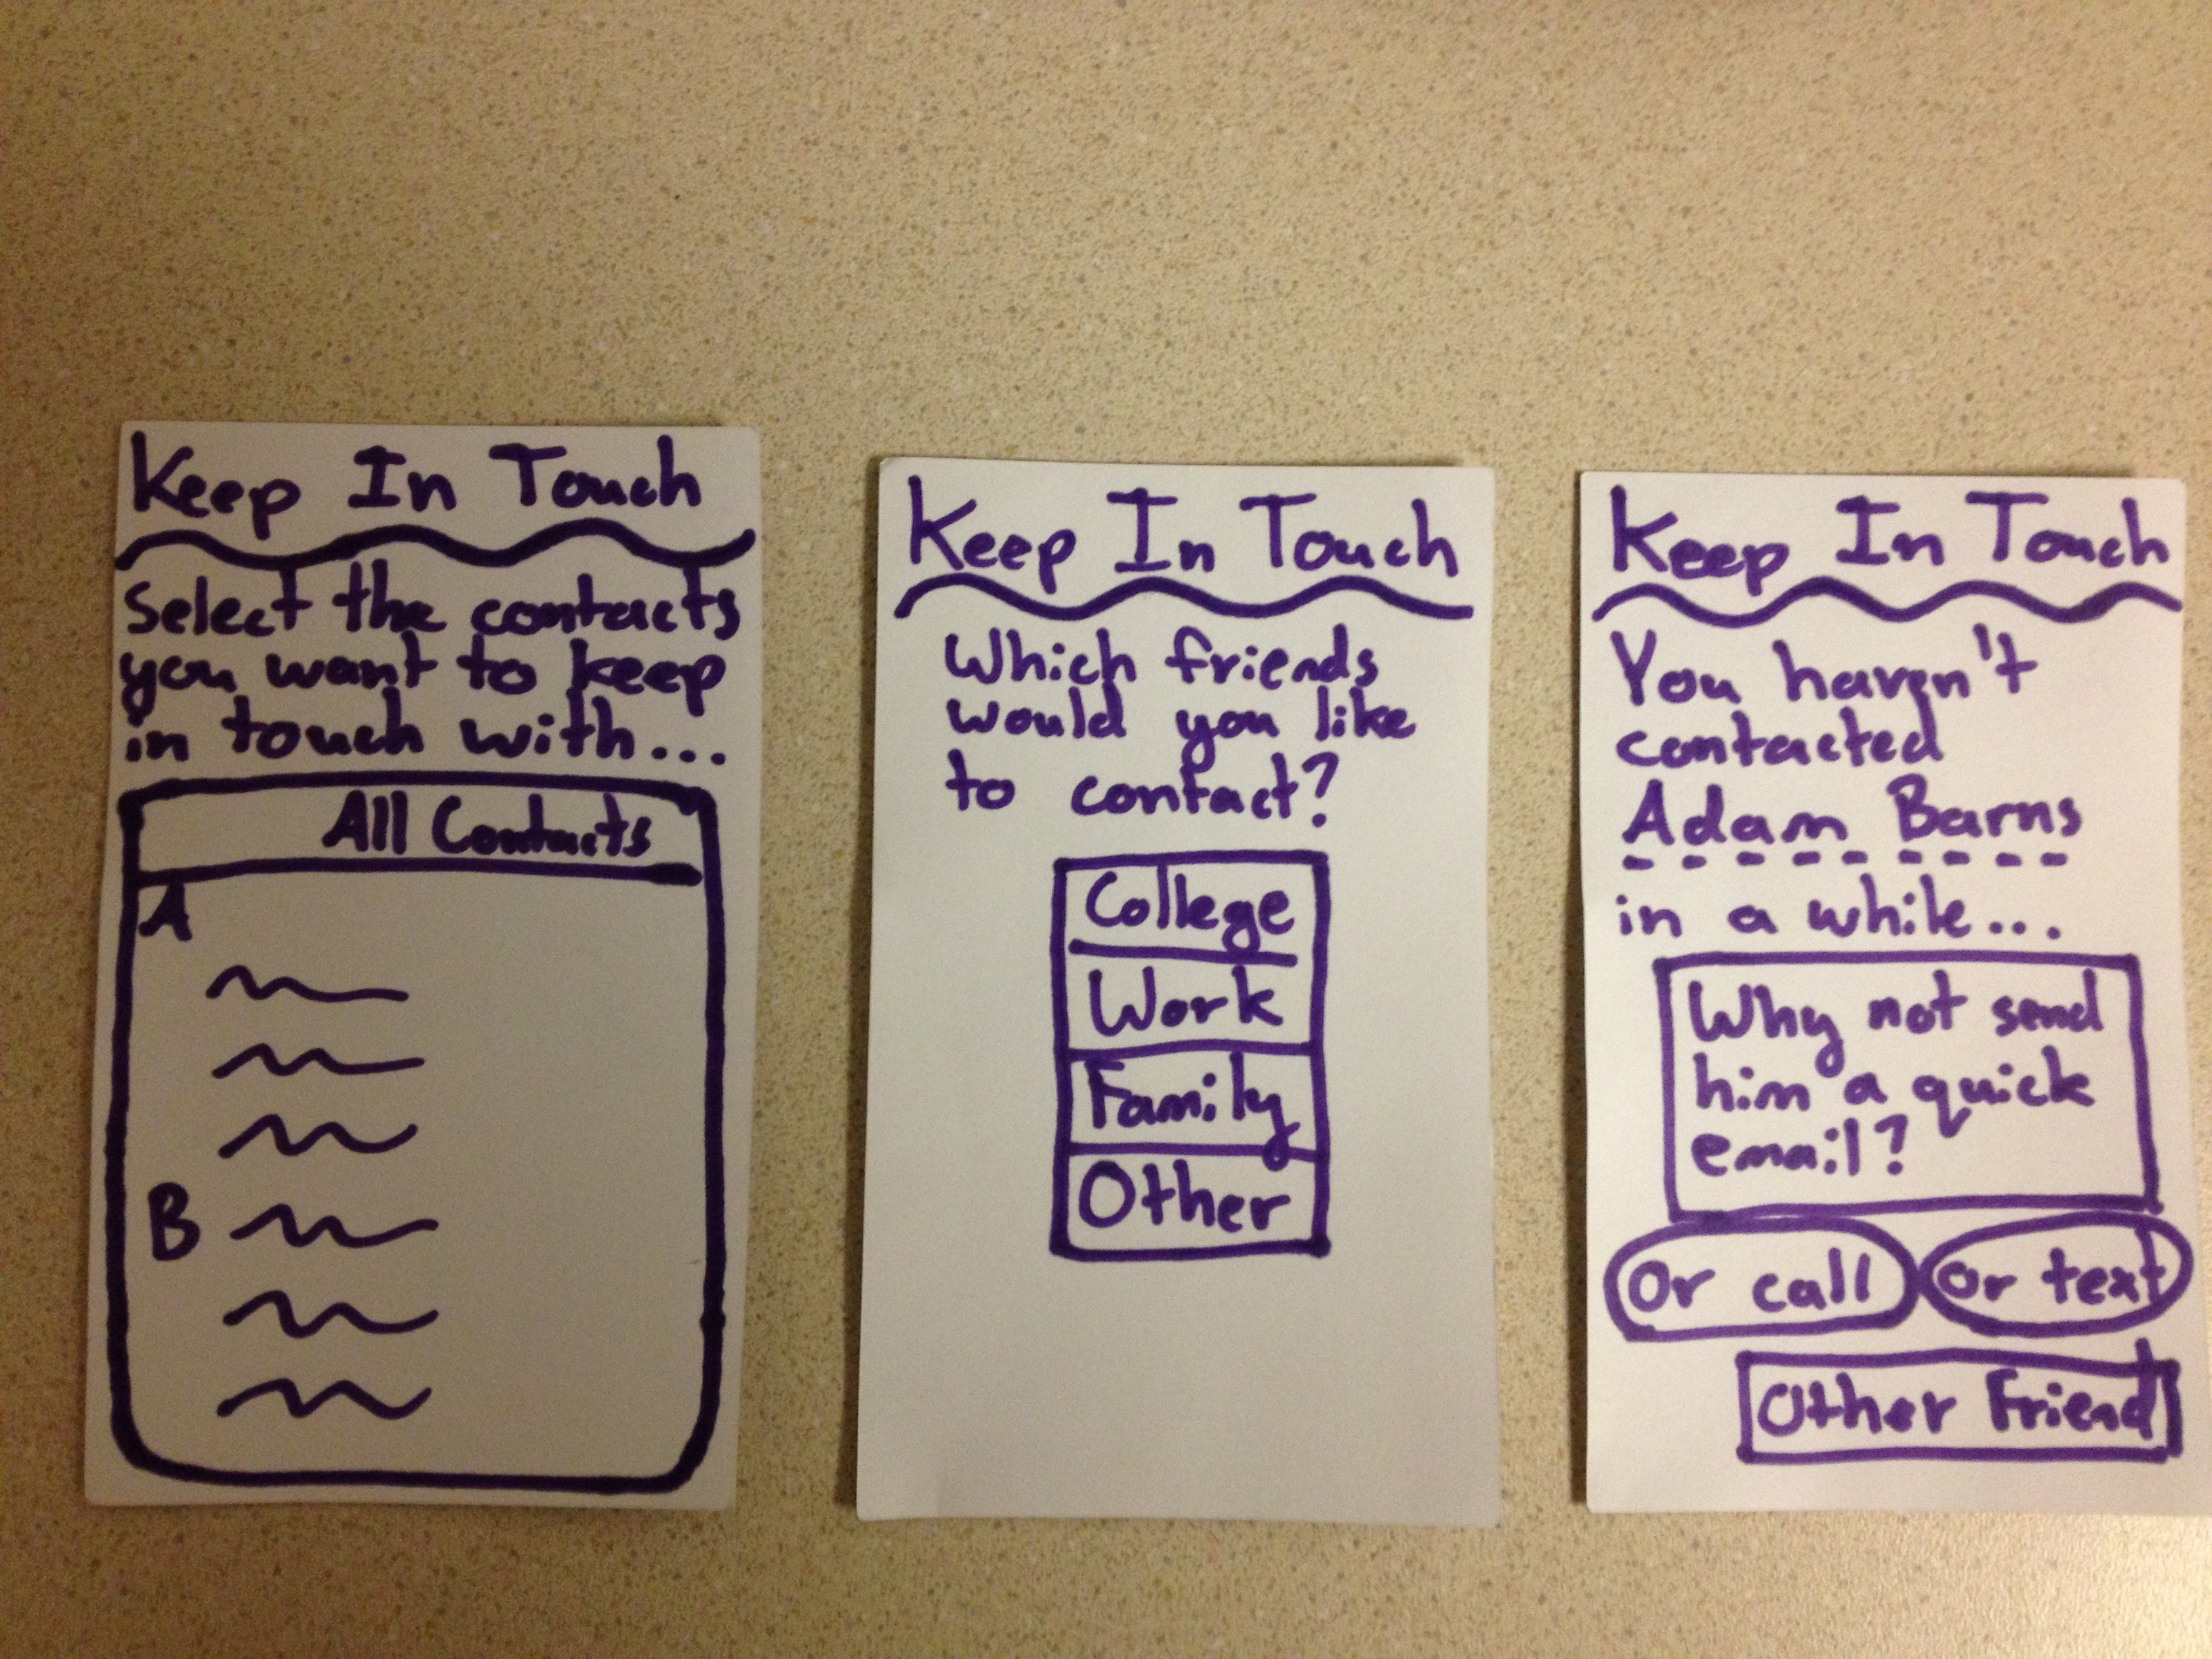 Keep In Touch
Select the contacts
you want to keep
in touch with...
All Contacts
A
B
Keep In Touch
Which friends
would you like
to contact?
College
Work
Family
Other
Keep In Touch
You haven't
contacted
Adam Barns
in a while...
Why not send
him a quick
email?
or call
or text
Other Friend